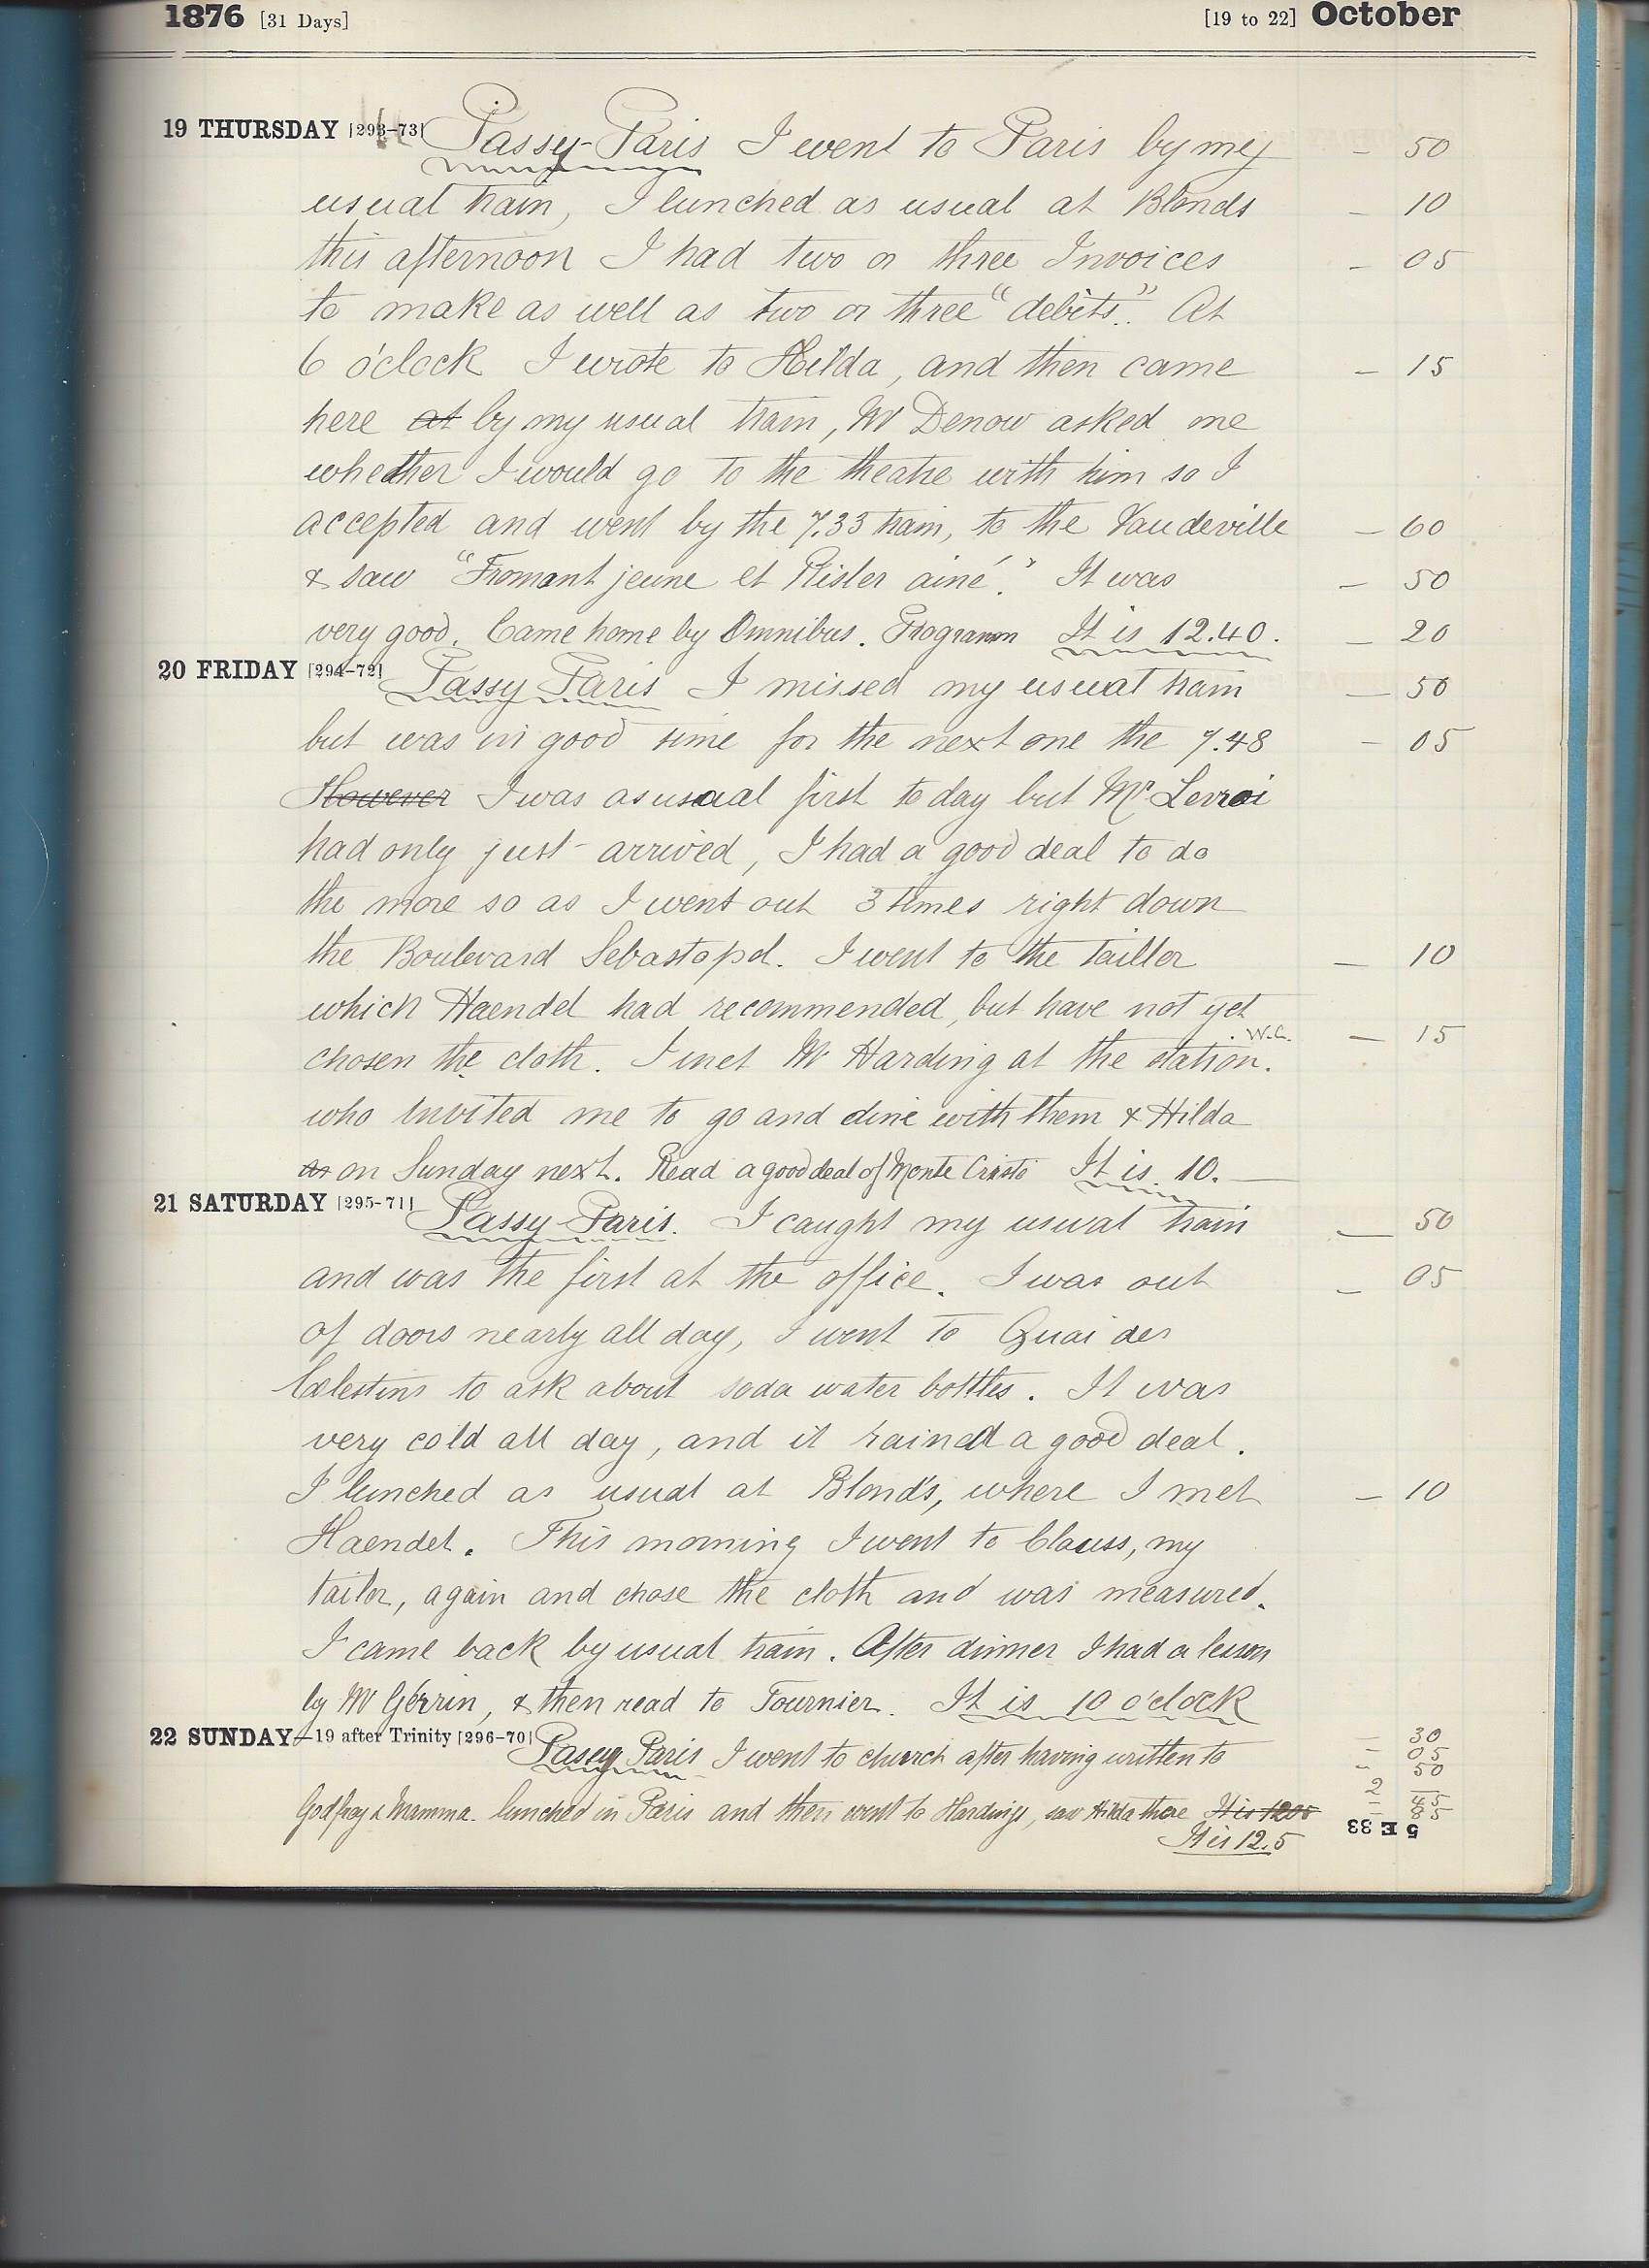 1876 [31 Days] [19 to 22] October
19 THURSDAY [293-73] Passy-Paris I went to Paris by my — 50
usual train, I lunched as usual at Blonds — 10
this afternoon I had two or three Invoices — 05
to make as well as two or three "debits". At
6 o'clock I wrote to Hilda, and then came — 15
here at by my usual train, Mr Denow asked me
whether I would go to the theatre with him so I
accepted and went by the 7.33 train, to the Vaudeville — 60
& saw "Fromont jeune et Risler ainé." It was — 50
very good. Came home by Omnibus. Programm It is 12.40. — 20
20 FRIDAY [294-72] Passy Paris I missed my usual train — 50
but was in good time for the next one the 7.48 — 05
However I was as usual first today but Mr Leroi
had only just arrived, I had a good deal to do
the more so as I went out 3 times right down
the Boulevard Sebastopol. I went to the taillor — 10
which Haendel had recommended, but have not yet
W.C. — 15
chosen the cloth. I met Mr Harding at the station.
who invited me to go and dine with them & Hilda
as on Sunday next. Read a good deal of Monte Cristo It is 10.
21 SATURDAY [295-71] Passy-Paris. I caught my usual train — 50
and was the first at the office. I was out — 05
of doors nearly all day, I went to Quai des
Celestins to ask about soda water bottles. It was
very cold all day, and it rained a good deal.
I lunched as usual at Blond's, where I met — 10
Haendel. This morning I went to Clauss, my
tailor, again and chose the cloth and was measured.
I came back by usual train. After dinner I had a lesson
by Mr Gérrin, & then read to Tournier. It is 10 o'clock
22 SUNDAY—19 after Trinity [296-70] Passy Paris I went to church after having written to — 30
— 05
— 50
Godfray & Mamma. lunched in Paris and then went to Hardings, saw Hilda there It is 1205 2 45
— 85
It is 12.5
5 E 33